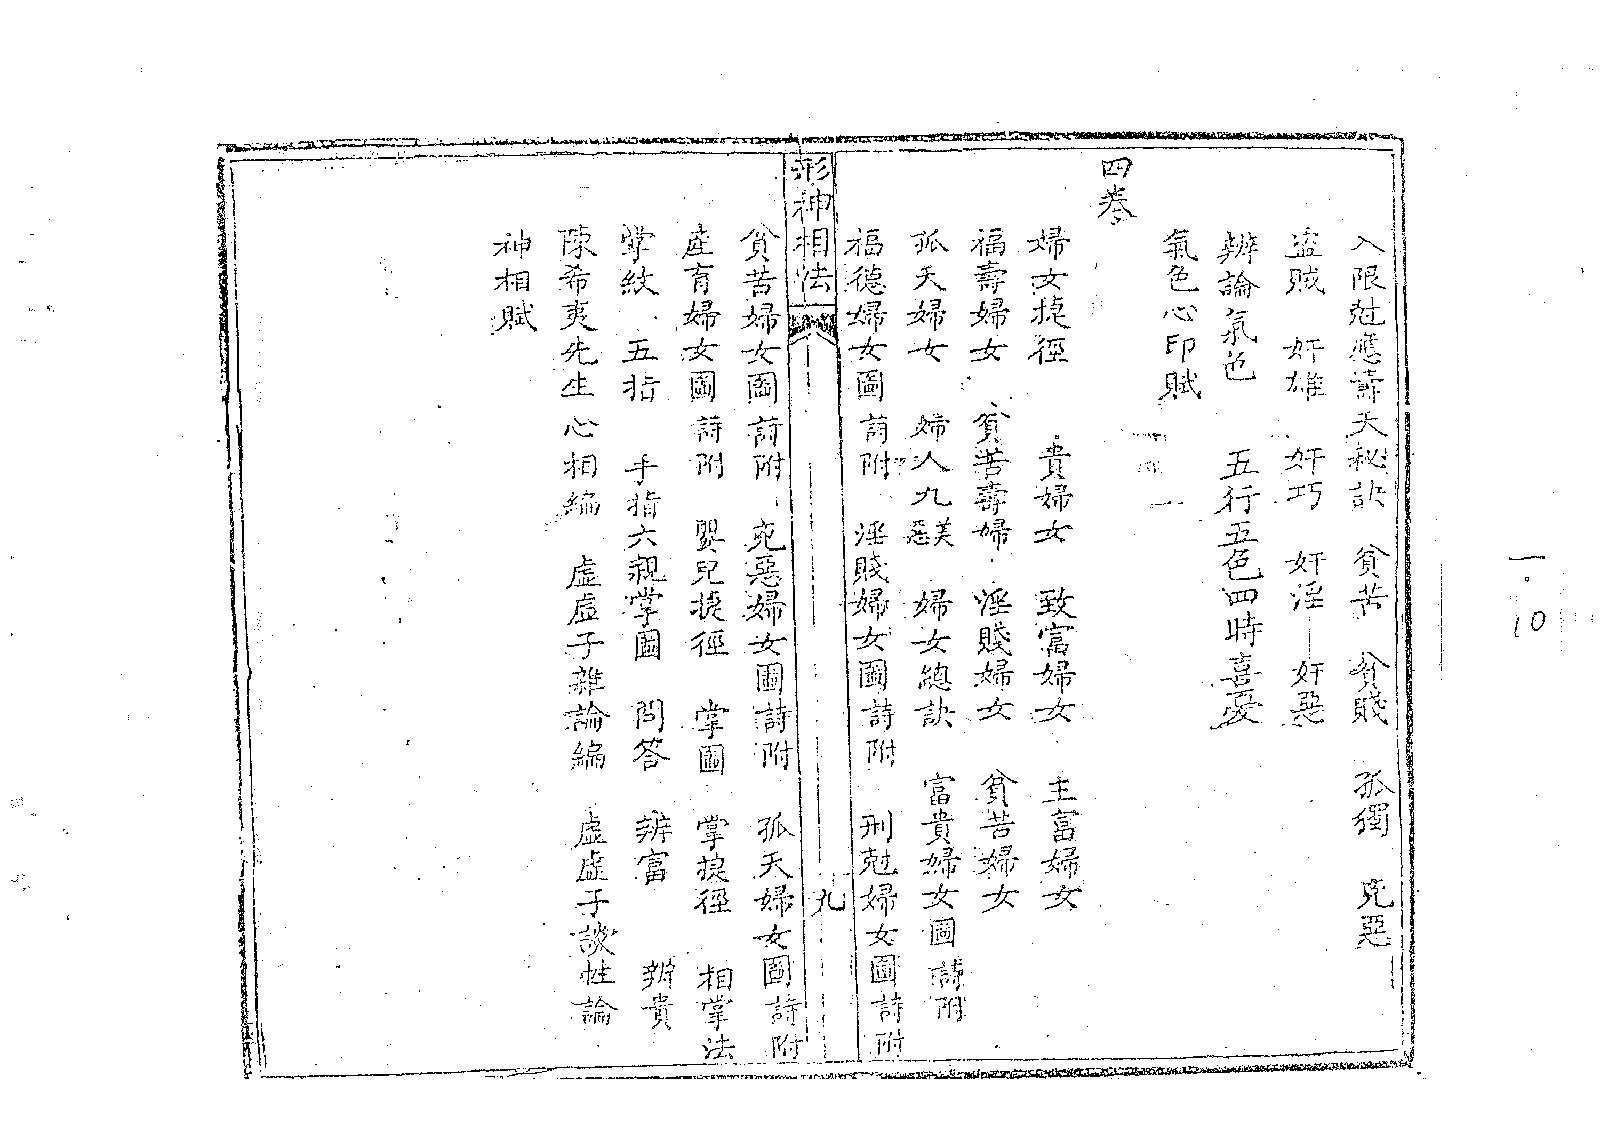 入限尅應壽夭秘訣　貧苦　貧賤　孤獨　兇惡
盜賊　奸雄　奸巧　奸淫　奸惡
辨論氣色　五行五色四時喜憂
氣色心印賦
四卷
婦女捷徑　貴婦女　致富婦女　主富婦女
福壽婦女　貧苦壽婦　淫賤婦女　貧苦婦女
孤夭婦女　婦人九美惡　婦女總訣　富貴婦女圖詩附
福德婦女圖詩附　淫賤婦女圖詩附　刑尅婦女圖詩附
形神相法　九
貧苦婦女圖詩附　兇惡婦女圖詩附　孤夭婦女圖詩附
產育婦女圖詩附　嬰兒捷徑　掌圖　掌捷徑　相掌法
掌紋　五指　手指六親掌圖　問答　辨富　辨貴
陳希夷先生心相編　虛虛子雜論編　虛虛子談性論
神相賦
一.10